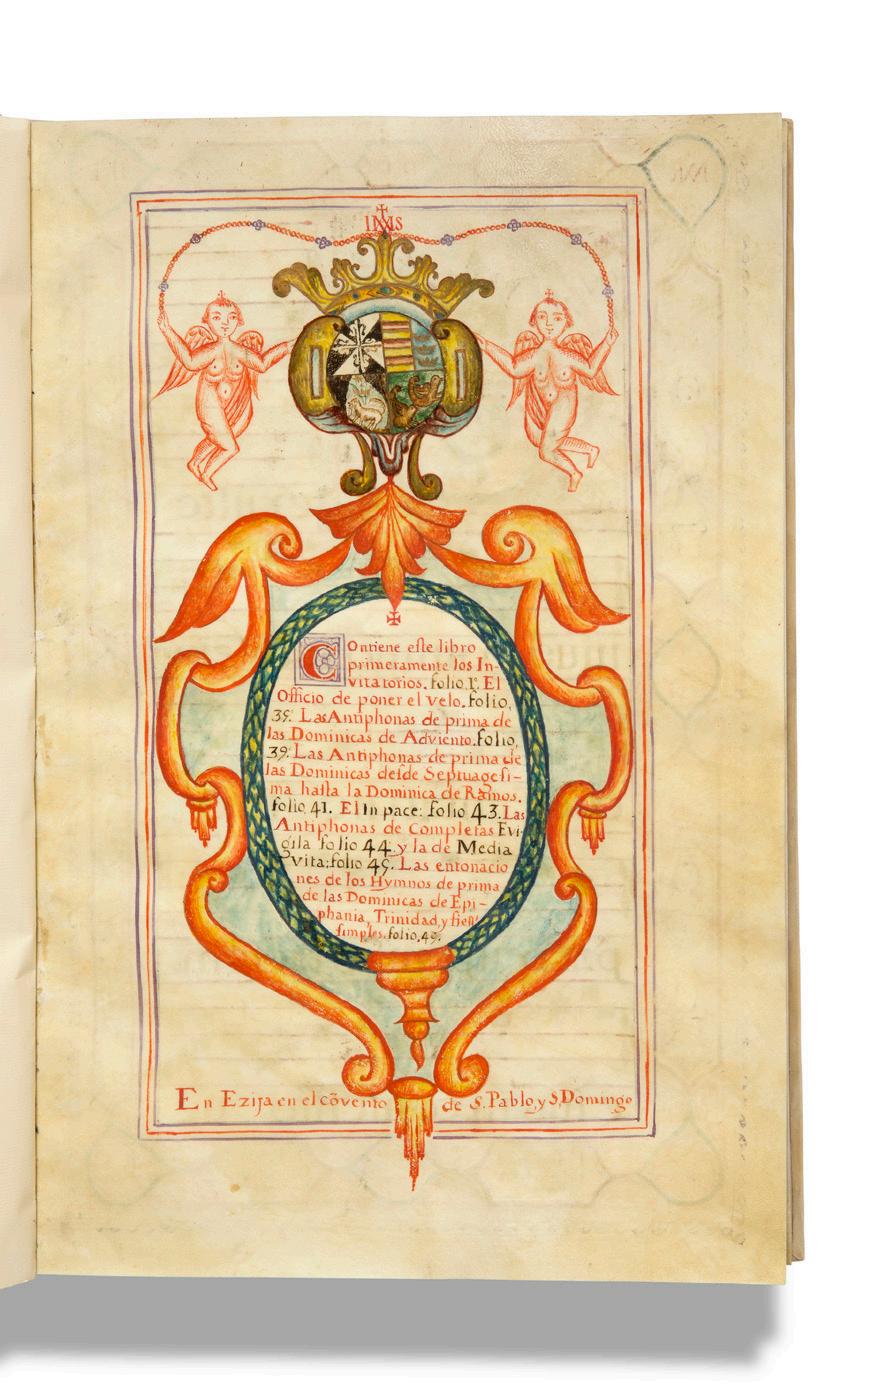 IHS
Contiene este libro
primeramente los In-
vitatorios. folio. 1º. El
Officio de poner el velo. folio,
35. Las Antiphonas de prima de
las Dominicas de Adviento. folio,
39. Las Antiphonas de prima de
las Dominicas desde Septuagesi-
ma hasta la Dominica de Ramos.
folio. 41. El In pace: folio 43. Las
Antiphonas de Completas Evi-
gila folio 44. y la de Media
vita: folio 45. Las entonacio
nes de los Hymnos de prima
de las Dominicas de Epi-
phania, Trinidad, y fiestˢ
simples. folio, 49.
En Ezija en el cõvento de S. Pablo, y S. Domingo